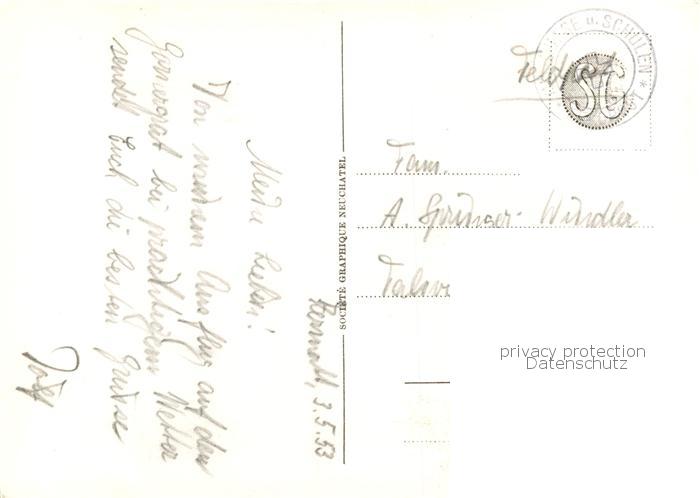 Zermatt, 3.5.53
Meine Lieben!
Von meinem Ausflug auf den
Gornergrat bei prächtigem Wetter
sendet Euch die besten Grüsse
SOCIÉTÉ GRAPHIQUE NEUCHATEL
u. SCHULEN *
Feldpost
SG
Fam.
A. Springer-Windler
privacy protection
Datenschutz